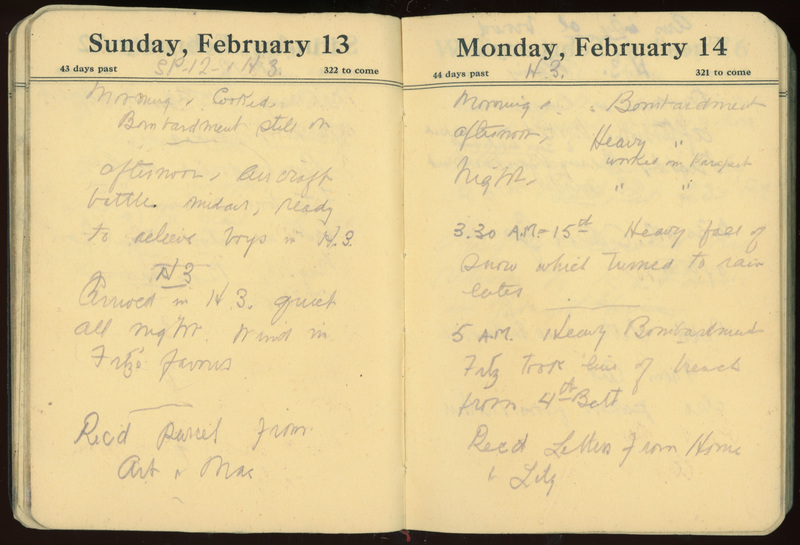 Sunday, February 13
43 days past
SP-12-1 H.3.
322 to come
Morning, Cooked
Bombardment still on
afternoon, aircraft
battle midair, ready
to releive boys in H.3.
H3
Arrived in H.3. quiet
all night. Wind in
Fritz favour
Rec'd parcel from
Art & Mac
Monday, February 14
44 days past
H.3.
321 to come
Morning, " Bombardment
afternoon, Heavy "
worked on Parapet
Night, " "
3.30 A.M. 15th Heavy fall of
snow which turned to rain
later
5 A.M. Heavy Bombardment
Fritz took line of trench
from 4th Batt
Recd Letters from Home
& Lily